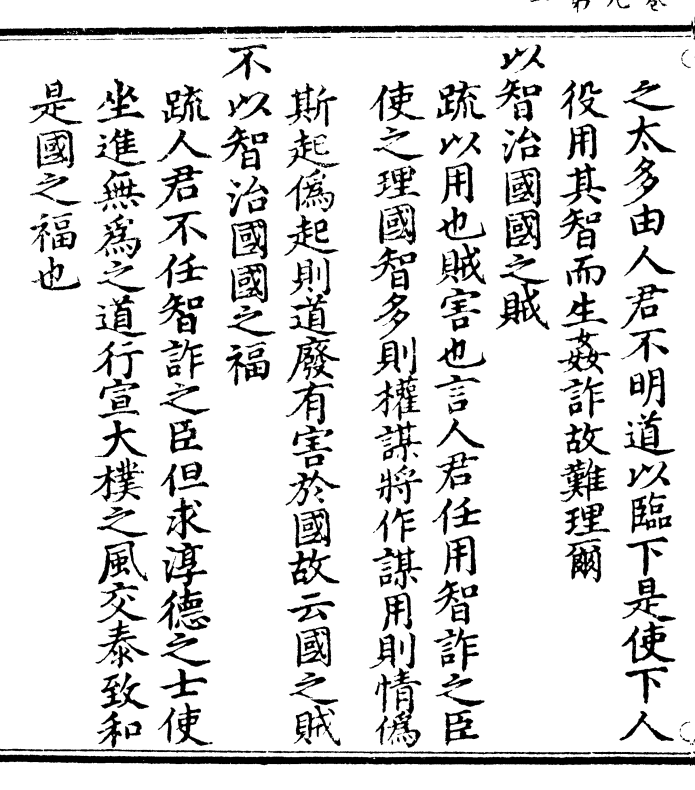 之太多由人君不明道以臨下是使下人
役用其智而生姦詐故難理爾
以智治國國之賊
疏以用也賊害也言人君任用智詐之臣
使之理國智多則權謀將作謀用則情僞
斯起僞起則道廢有害於國故云國之賊
不以智治國國之福
疏人君不任智詐之臣但求淳德之士使
坐進無爲之道行宣大樸之風交泰致和
是國之福也